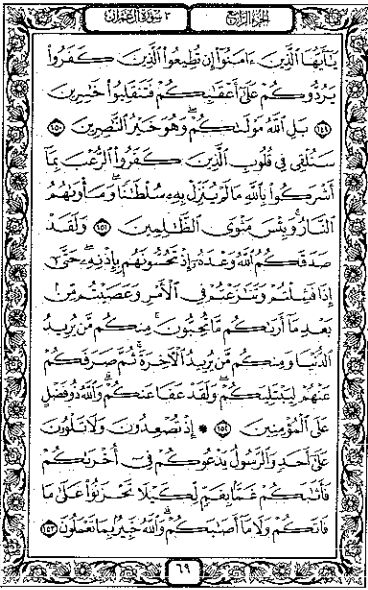 ٣ سُورَةُ آلِ عِمْرَانَ
الجُزْءُ الرَّابِعُ
يَٰٓأَيُّهَا ٱلَّذِينَ ءَامَنُوٓا۟ إِن تُطِيعُوا۟ ٱلَّذِينَ كَفَرُوا۟
يَرُدُّوكُمْ عَلَىٰٓ أَعْقَٰبِكُمْ فَتَنقَلِبُوا۟ خَٰسِرِينَ
﴿١٤٩﴾ بَلِ ٱللَّهُ مَوْلَىٰكُمْ ۖ وَهُوَ خَيْرُ ٱلنَّٰصِرِينَ ﴿١٥٠﴾
سَنُلْقِى فِى قُلُوبِ ٱلَّذِينَ كَفَرُوا۟ ٱلرُّعْبَ بِمَآ
أَشْرَكُوا۟ بِٱللَّهِ مَا لَمْ يُنَزِّلْ بِهِۦ سُلْطَٰنًا ۖ وَمَأْوَىٰهُمُ
ٱلنَّارُ ۚ وَبِئْسَ مَثْوَى ٱلظَّٰلِمِينَ ﴿١٥١﴾ وَلَقَدْ
صَدَقَكُمُ ٱللَّهُ وَعْدَهُۥٓ إِذْ تَحُسُّونَهُم بِإِذْنِهِۦ ۖ حَتَّىٰٓ
إِذَا فَشِلْتُمْ وَتَنَٰزَعْتُمْ فِى ٱلْأَمْرِ وَعَصَيْتُم مِّنۢ
بَعْدِ مَآ أَرَىٰكُم مَّا تُحِبُّونَ ۚ مِنكُم مَّن يُرِيدُ
ٱلدُّنْيَا وَمِنكُم مَّن يُرِيدُ ٱلْـَٔاخِرَةَ ۚ ثُمَّ صَرَفَكُمْ
عَنْهُمْ لِيَبْتَلِيَكُمْ ۖ وَلَقَدْ عَفَا عَنكُمْ ۗ وَٱللَّهُ ذُو فَضْلٍ
عَلَى ٱلْمُؤْمِنِينَ ﴿١٥٢﴾ ۞ إِذْ تُصْعِدُونَ وَلَا تَلْوُۥنَ
عَلَىٰٓ أَحَدٍ وَٱلرَّسُولُ يَدْعُوكُمْ فِىٓ أُخْرَىٰكُمْ
فَأَثَٰبَكُمْ غَمًّۢا بِغَمٍّ لِّكَيْلَا تَحْزَنُوا۟ عَلَىٰ مَا
فَاتَكُمْ وَلَا مَآ أَصَٰبَكُمْ ۗ وَٱللَّهُ خَبِيرٌۢ بِمَا تَعْمَلُونَ ﴿١٥٣﴾
٦٩